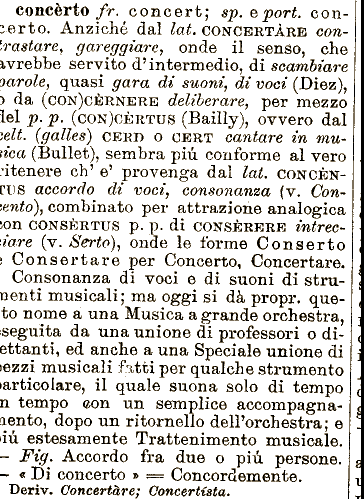 concèrto fr. concert; sp. e port. con-
certo. Anziché dal lat. CONCERTÀRE con-
trastare, gareggiare, onde il senso, che
avrebbe servito d'intermedio, di scambiare
parole, quasi gara di suoni, di voci (Diez),
o da (CON)CÈRNERE deliberare, per mezzo
del p. p. (CON)CÈRTUS (Bailly), ovvero dal
celt. (galles) CERD o CERT cantare in mu-
sica (Bullet), sembra piú conforme al vero
ritenere ch' e' provenga dal lat. CONCÈN-
TUS accordo di voci, consonanza (v. Con-
cento), combinato per attrazione analogica
con CONSÈRTUS p. p. di CONSÈRERE intrec-
ciare (v. Serto), onde le forme Conserto
e Consertare per Concerto, Concertare.
Consonanza di voci e di suoni di stru-
menti musicali; ma oggi si dà propr. que-
sto nome a una Musica a grande orchestra,
eseguita da una unione di professori o di-
lettanti, ed anche a una Speciale unione di
pezzi musicali fatti per qualche strumento
particolare, il quale suona solo di tempo
in tempo con un semplice accompagna-
mento, dopo un ritornello dell'orchestra; e
piú estesamente Trattenimento musicale.
— Fig. Accordo fra due o piú persone.
— « Di concerto » = Concordemente.
Deriv. Concertàre; Concertísta.